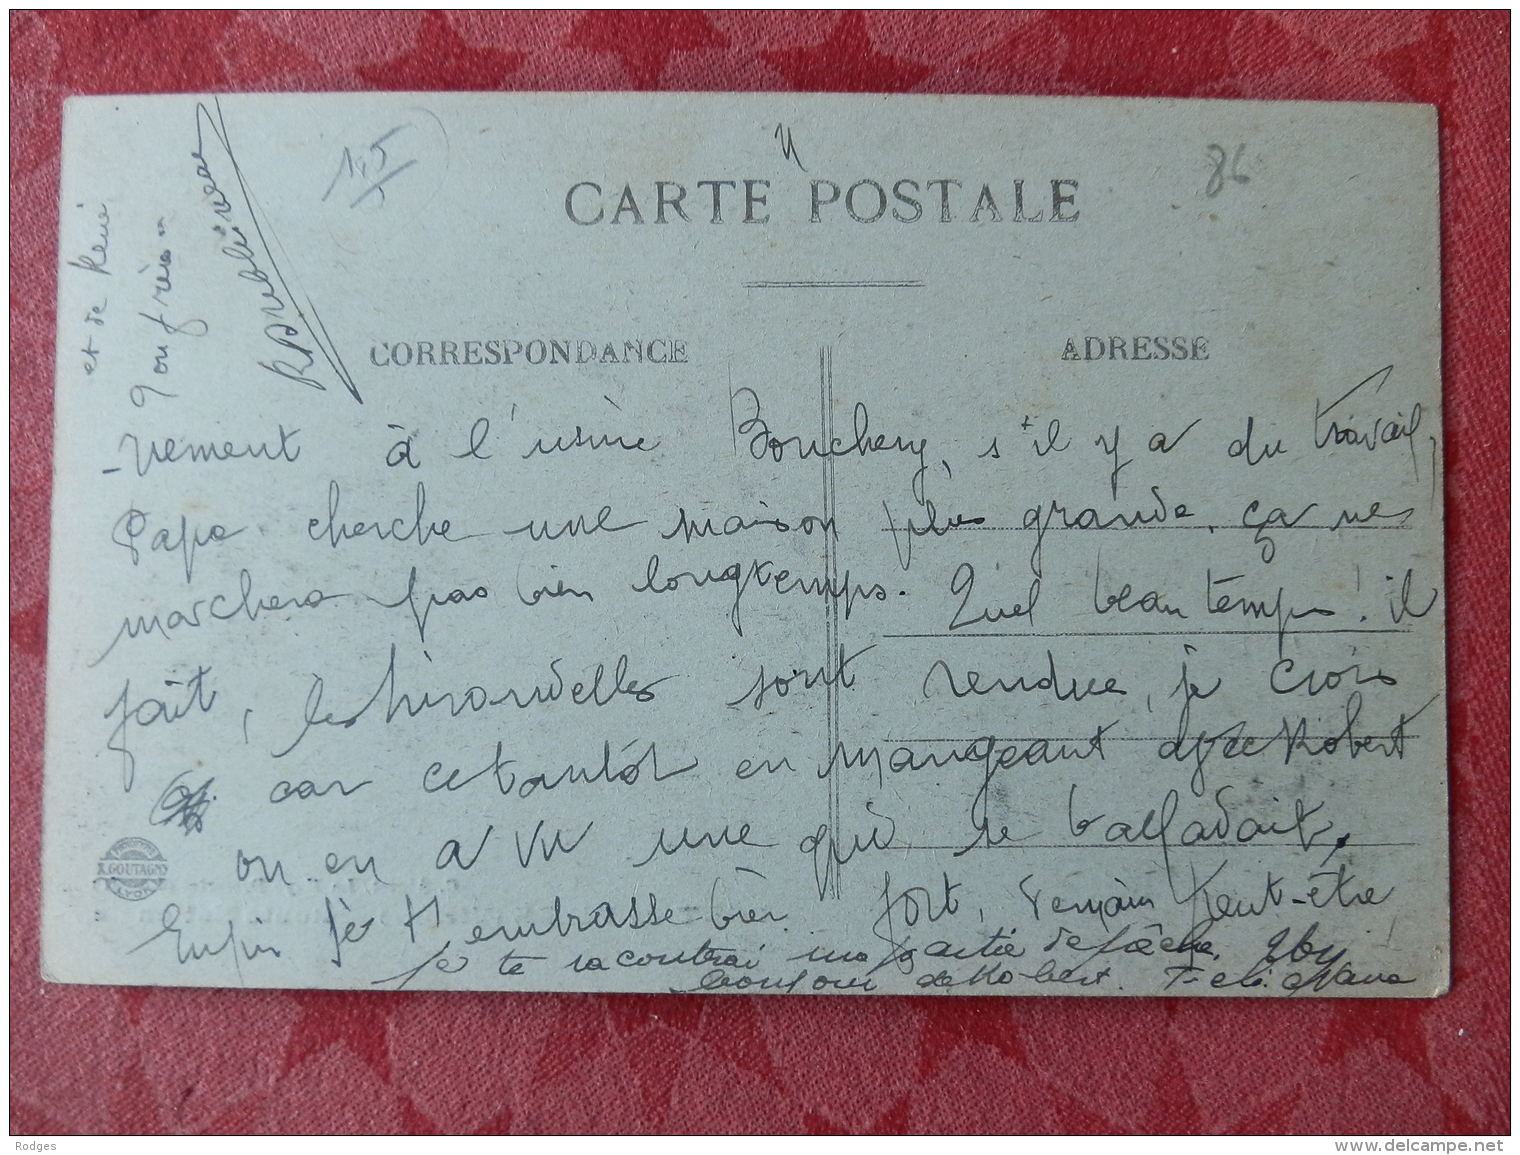 CARTE POSTALE
86
CORRESPONDANCE
ADRESSE
-vement à l'usine Bouchery, s'il y a du travail,
Papa cherche une maison plus grande, ça ne
marchera pas bien longtemps. Quel beau temps! il
fait, les hirondelles sont rendue, je crois
car cetantôt en mangeant avec Robert
on en a vu une qui se balladait,
Enfin je t'embrasse bien fort, demain peut-être
je te racontrai ma partie de pêche.
bonjour de Robert.
et de René
R. GOUTAGNY
LYON
Rodges
www.delcampe.net